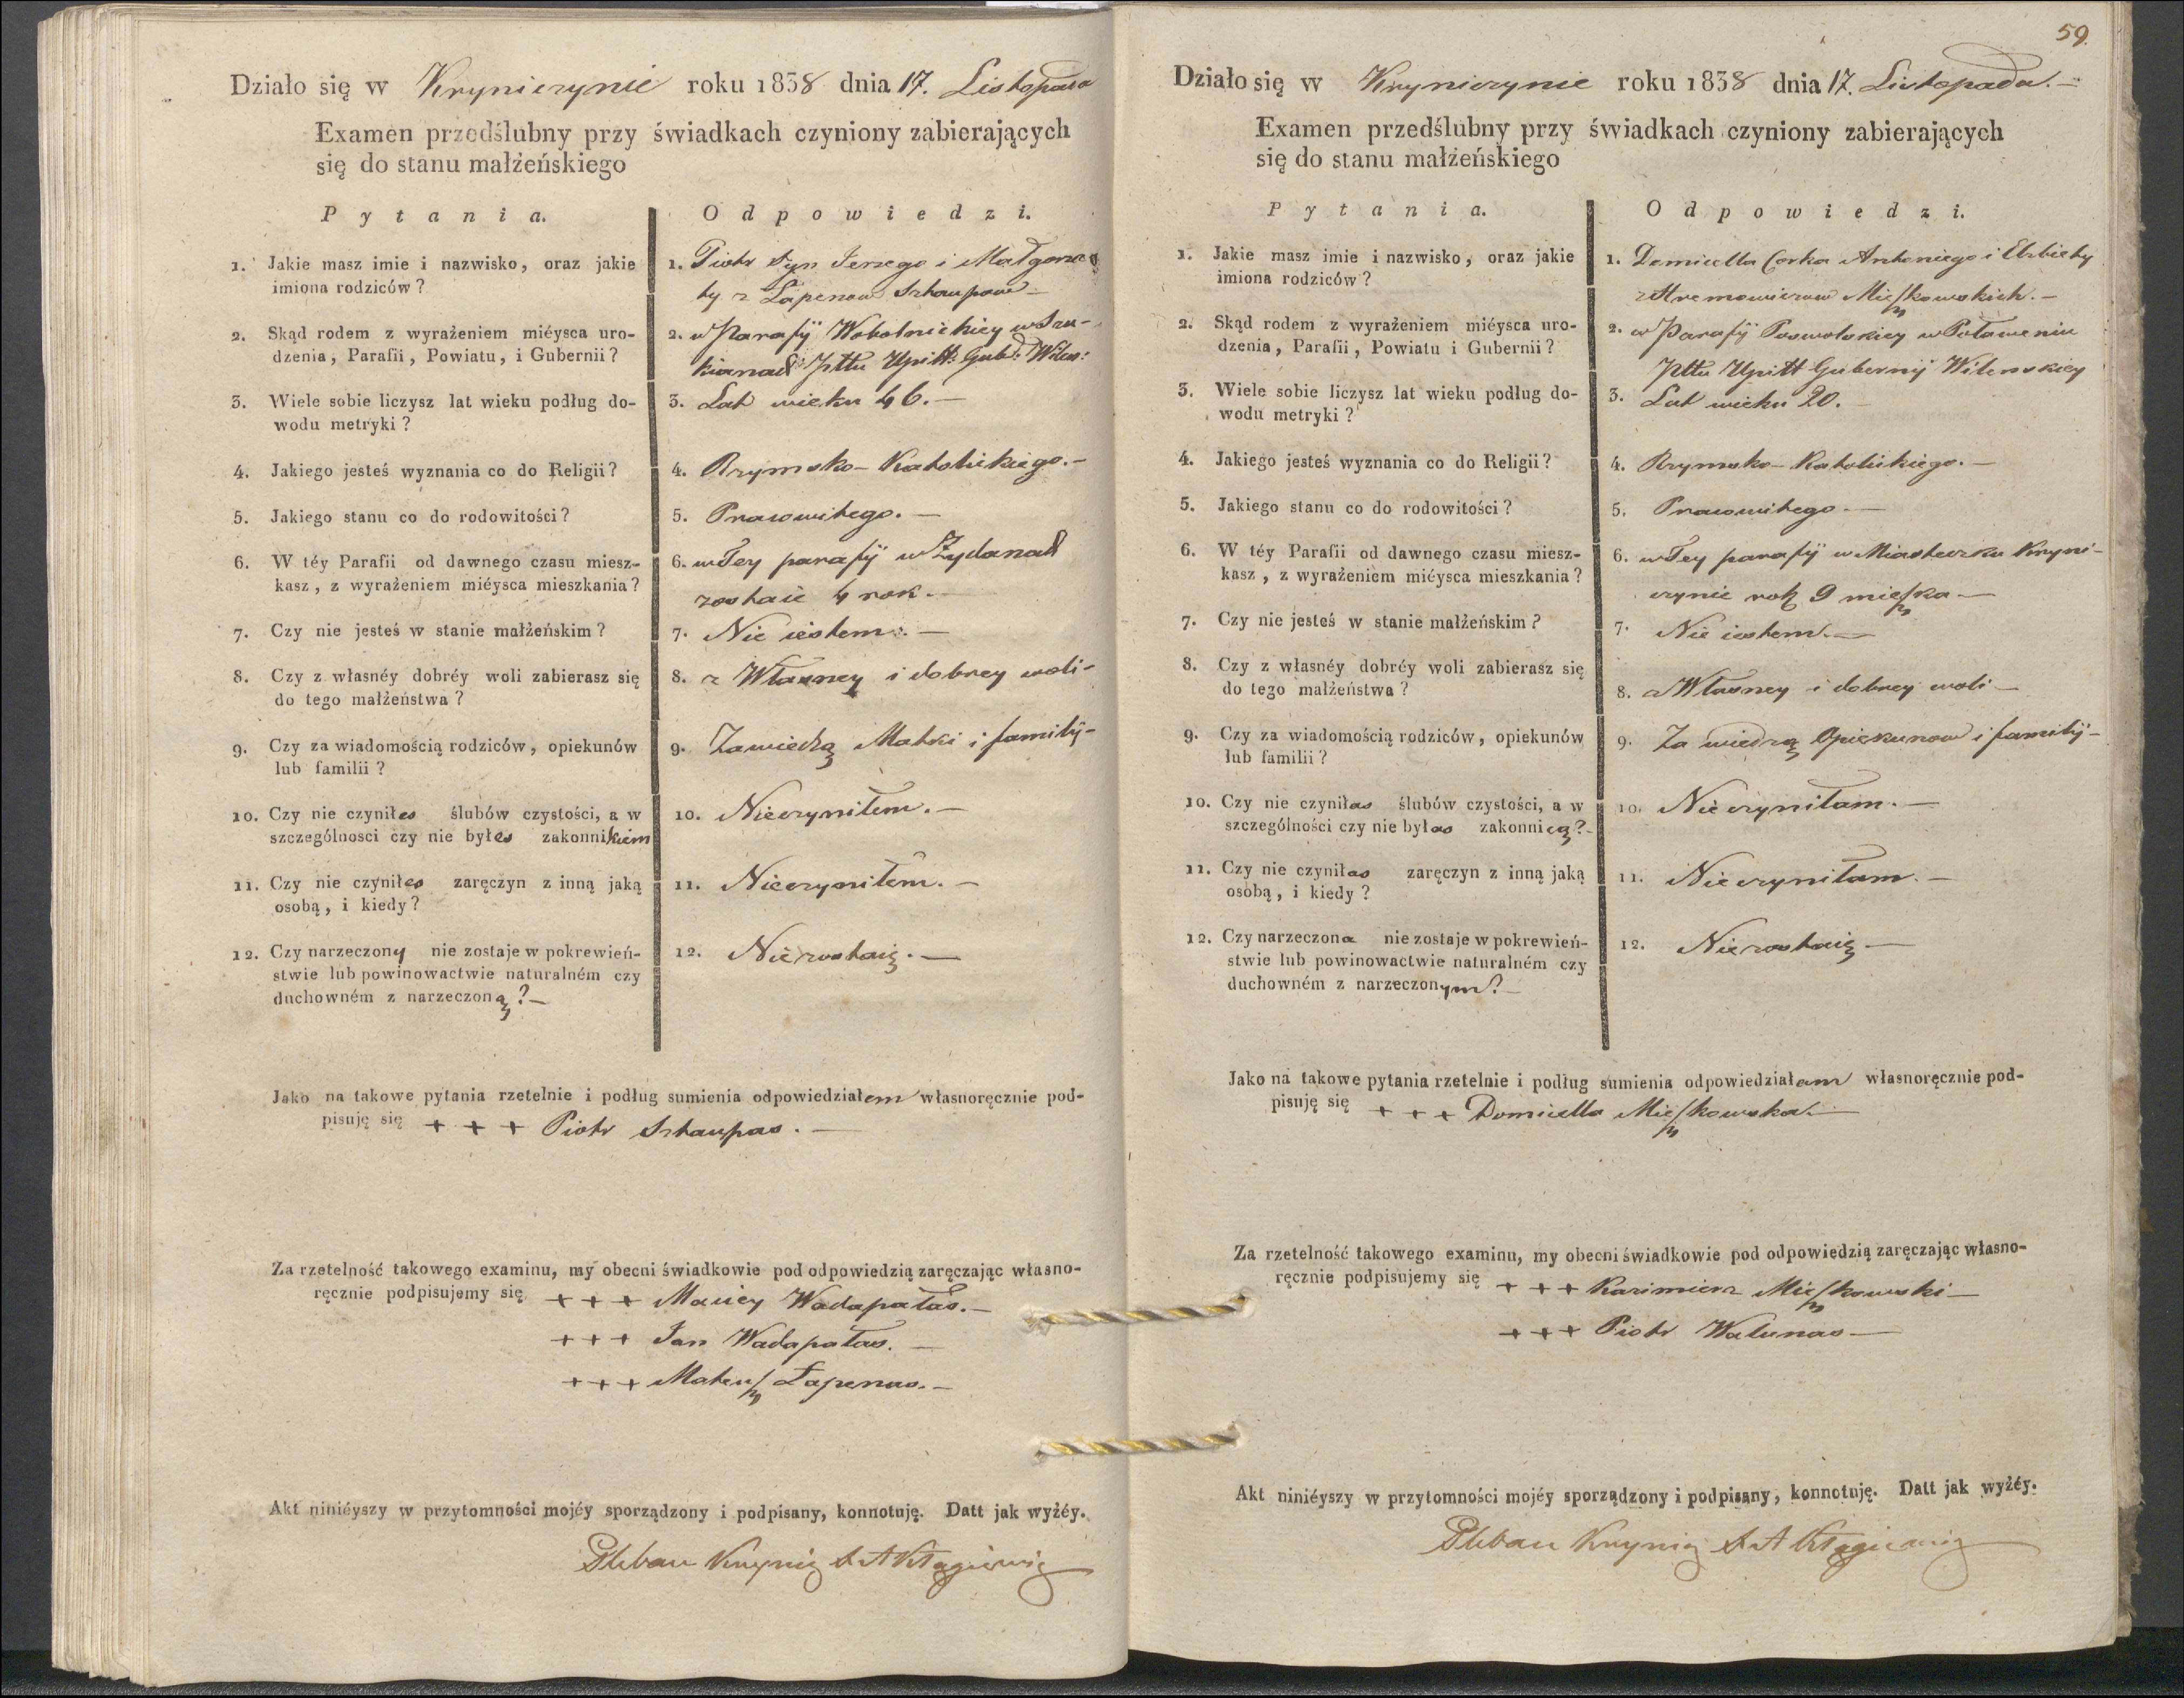 Działo się w Kryniczynie roku 1838 dnia 17. Listopada
Examen przedślubny przy świadkach czyniony zabierających
się do stanu małżeńskiego
Pytania. Odpowiedzi.
1. Jakie masz imie i nazwisko, oraz jakie
imiona rodziców?
1. Piotr Syn Jerzego i Małgorza
ty z Łapenow Sztaupow
2. Skąd rodem z wyrażeniem miéysca uro-
dzenia, Parafii, Powiatu, i Gubernii?
2. w Parafij Wobolnickiey w
Pttu Upitt: Gub: Wilen:
3. Wiele sobie liczysz lat wieku podług do-
wodu metryki?
3. Lat wieku 46.—
4. Jakiego jesteś wyznania co do Religii?
4. Rzymsko-Katolickiego.—
5. Jakiego stanu co do rodowitości?
5. Pracowitego.—
6. W téy Parafii od dawnego czasu miesz-
kasz, z wyrażeniem miéysca mieszkania?
6. w Tey parafij w Zydanach
zostaie 4 rok.—
7. Czy nie jesteś w stanie małżeńskim?
7. Nie iestem.—
8. Czy z własnéy dobréy woli zabierasz się
do tego małżeństwa?
8. z Własney i dobrey woli-
9. Czy za wiadomością rodziców, opiekunów
lub familii?
9. Zawiedzą Matki i familij-
10. Czy nie czyniłes ślubów czystości, a w
szczególnosci czy nie byłes zakonnikiem
10. Nieczyniłem.—
11. Czy nie czyniłes zaręczyn z inną jaką
osobą, i kiedy?
11. Nieczyniłem.—
12. Czy narzeczony nie zostaje w pokrewień-
stwie lub powinowactwie naturalném czy
duchowném z narzeczoną?—
12. Niezostaię.—
Jako na takowe pytania rzetelnie i podług sumienia odpowiedziałem własnoręcznie pod-
pisuję się + + + Piotr Sztaupas.—
Za rzetelność takowego examinu, my obecni świadkowie pod odpowiedzią zaręczając własno-
ręcznie podpisujemy się + + + Maciey Wadapałas.—
+ + + Jan Wadapałas.—
+ + + Mateusz Łapenas.—
Akt niniéyszy w przytomności mojéy sporządzony i podpisany, konnotuję. Datt jak wyżéy.
Pleban
59.
Działo się w Kryniczynie roku 1838 dnia 17. Listopada.—
Examen przedślubny przy świadkach czyniony zabierających
się do stanu małżeńskiego
Pytania. Odpowiedzi.
1. Jakie masz imie i nazwisko, oraz jakie
imiona rodziców?
1. Domicella Corka Antoniego i Elzbiety
Mieszkowskich.—
2. Skąd rodem z wyrażeniem miéysca uro-
dzenia, Parafii, Powiatu i Gubernii?
2. w Parafij Poswolskiey w
Pttu Upitt Gubernij Wilenskiey
3. Wiele sobie liczysz lat wieku podług do-
wodu metryki?
3. Lat wieku 20.
4. Jakiego jesteś wyznania co do Religii?
4. Rzymsko-Katolickiego.—
5. Jakiego stanu co do rodowitości?
5. Pracowitego.—
6. W téy Parafii od dawnego czasu miesz-
kasz, z wyrażeniem miéysca mieszkania?
6. w Tey parafij w Miasteczku Kryni-
czynie rok 9 mieszka—
7. Czy nie jesteś w stanie małżeńskim?
7. Nie iestem.—
8. Czy z własnéy dobréy woli zabierasz się
do tego małżeństwa?
8. z Własney i dobrey woli—
9. Czy za wiadomością rodziców, opiekunów
lub familii?
9. Za wiedzą Opiekunow i familij-
10. Czy nie czyniłas ślubów czystości, a w
szczególności czy nie byłas zakonnicą?-
10. Nie czyniłam.—
11. Czy nie czyniłas zaręczyn z inną jaką
osobą, i kiedy?
11. Nie czyniłam.—
12. Czy narzeczona nie zostaje w pokrewień-
stwie lub powinowactwie naturalném czy
duchowném z narzeczonym?—
12. Niezostaię—
Jako na takowe pytania rzetelnie i podług sumienia odpowiedziałam własnoręcznie pod-
pisuję się + + + Domicella Mieszkowska.—
Za rzetelność takowego examinu, my obecni świadkowie pod odpowiedzią zaręczając własno-
ręcznie podpisujemy się + + + Kazimierz Mieszkowski—
+ + + Piotr Walunas—
Akt niniéyszy w przytomności mojéy sporządzony i podpisany, konnotuję. Datt jak wyżéy.
Pleban